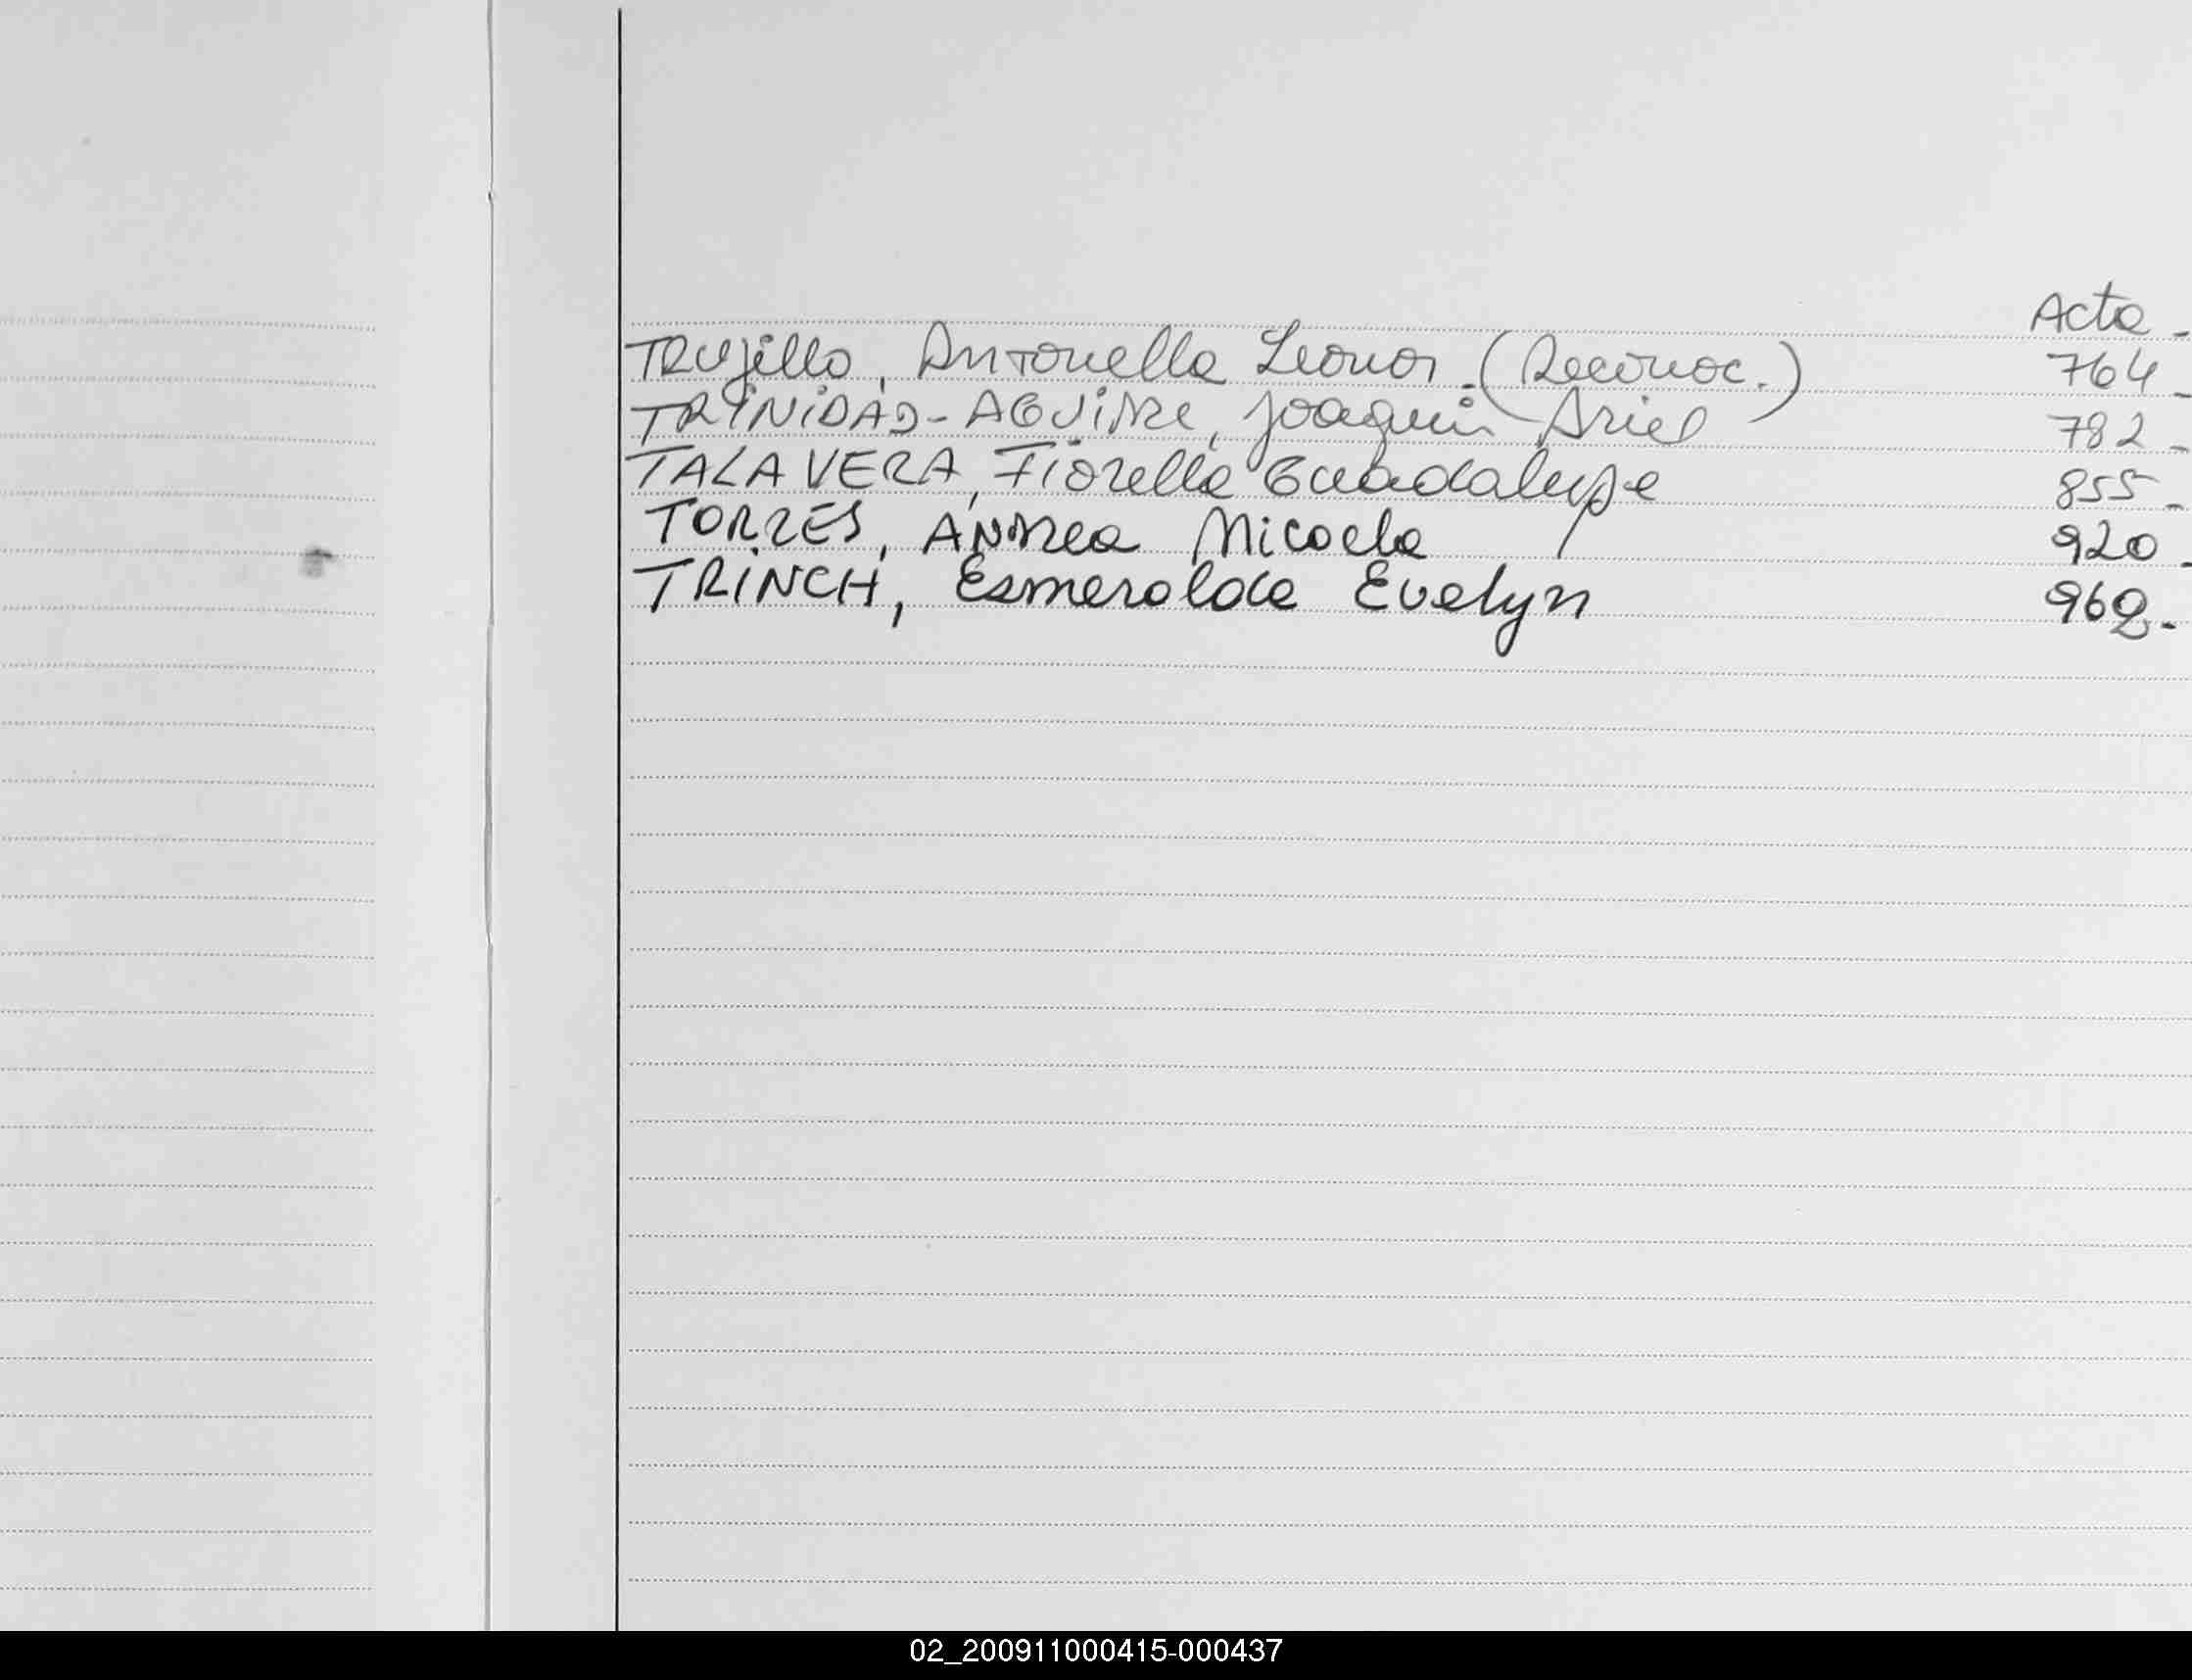 Acta -
TRUjillo, Antonella Leonor. (Reconoc.) 764 -
TRINIDAD-AGUIRRE, Joaquin Ariel 782 -
TALAVERA, Fiorella Guadalupe 855 -
TORRES, ANDREA Micaela 920 -
TRINCH, Esmeralda Evelyn 962 -
02_200911000415-000437